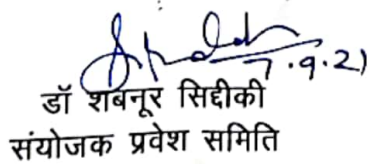 7.9.21
डॉ शबनूर सिद्दीकी
संयोजक प्रवेश समिति